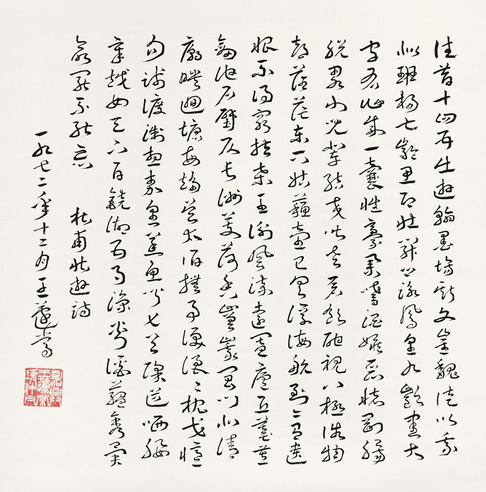 往昔十四五出遊翰墨場斯文崔魏徒以我
似班揚七齡思即壯開口詠鳳皇九齡書大
字有作成一囊性豪業嗜酒嫉惡懷剛腸
脫略小兒輩結交皆老蒼飲酣視八極俗物
都茫茫東下姑蘇臺已具浮海航到今有遺
恨不得窮扶桑王謝風流遠闔廬丘墓荒
劍池石壁仄長洲芰荷香嵯峨閶門北清
廟映迴塘每趨吳太伯撫事淚浪浪枕戈憶
勾踐渡浙想秦皇蒸魚聞匕首除道哂要
章越女天下白鏡湖五月涼剡溪蘊秀異
欲罷不能忘 杜甫壯遊詩
一九七二年十二月王蘧常